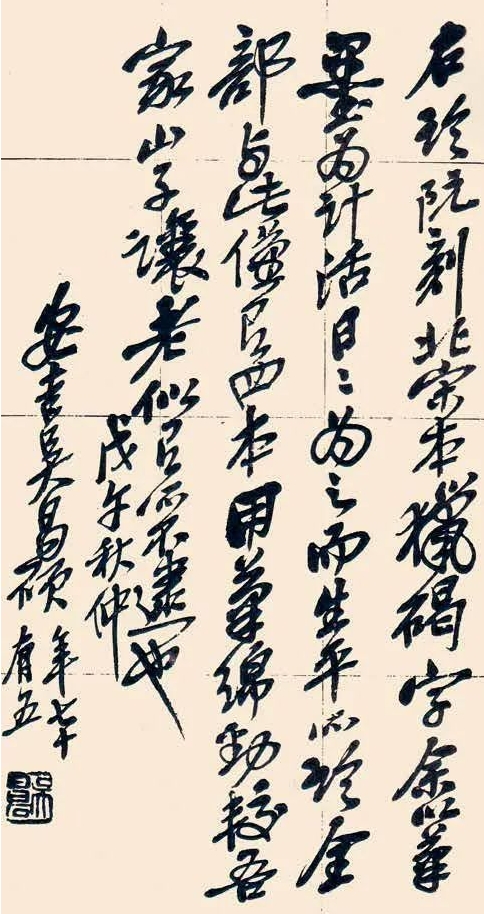 右珍阮刻北宋本獵碣字余以筆
墨為計活日〻為之而生平所珍全
部與此僅見四本用筆綿勁較吾
家山子讓老似見所不逮也
戊午秋仲
安吉吳昌碩年七十
有五